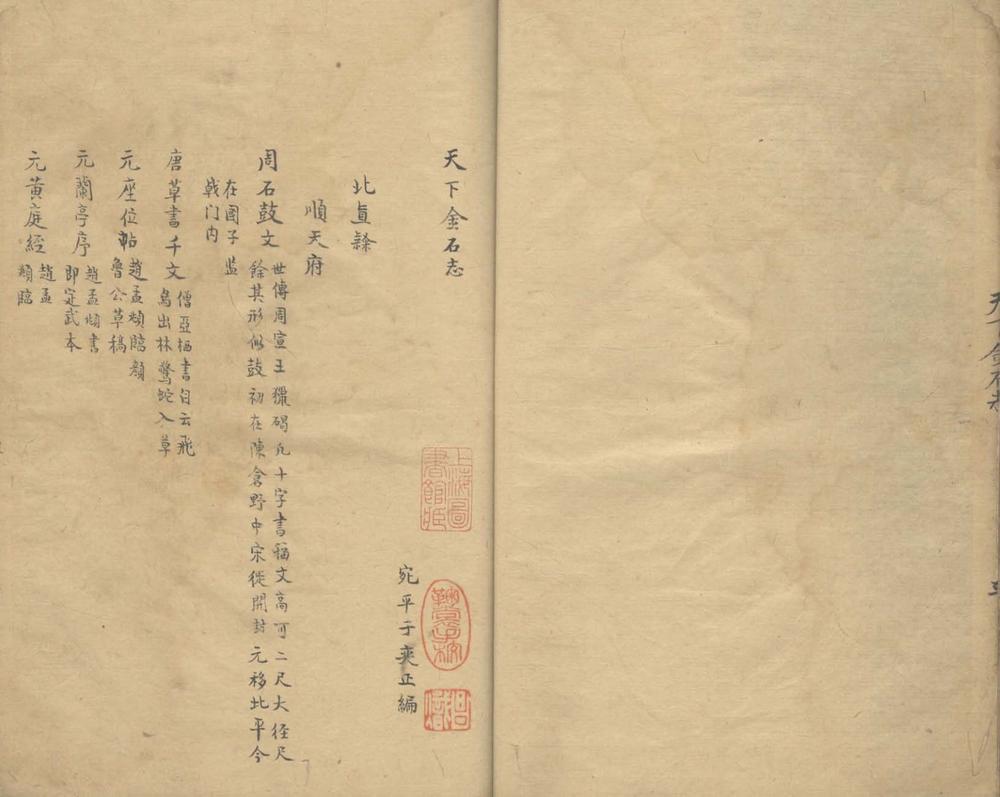 天下金石志
宛平于奕正編
北直隸
順天府
周石鼓文
世傳周宣王獵碣凡十字書籀文高可二尺大徑尺
餘其形似鼓初在陳倉野中宋徙開封元移北平今
在國子监
戟门内
唐草書千文
僧亞栖書白云飛
鳥出林驚蛇入草
元座位帖
趙孟頫臨顏
魯公草稿
元蘭亭序
趙孟頫書
即定武本
元黃庭經
趙孟
頫臨
上海圖
書館臧